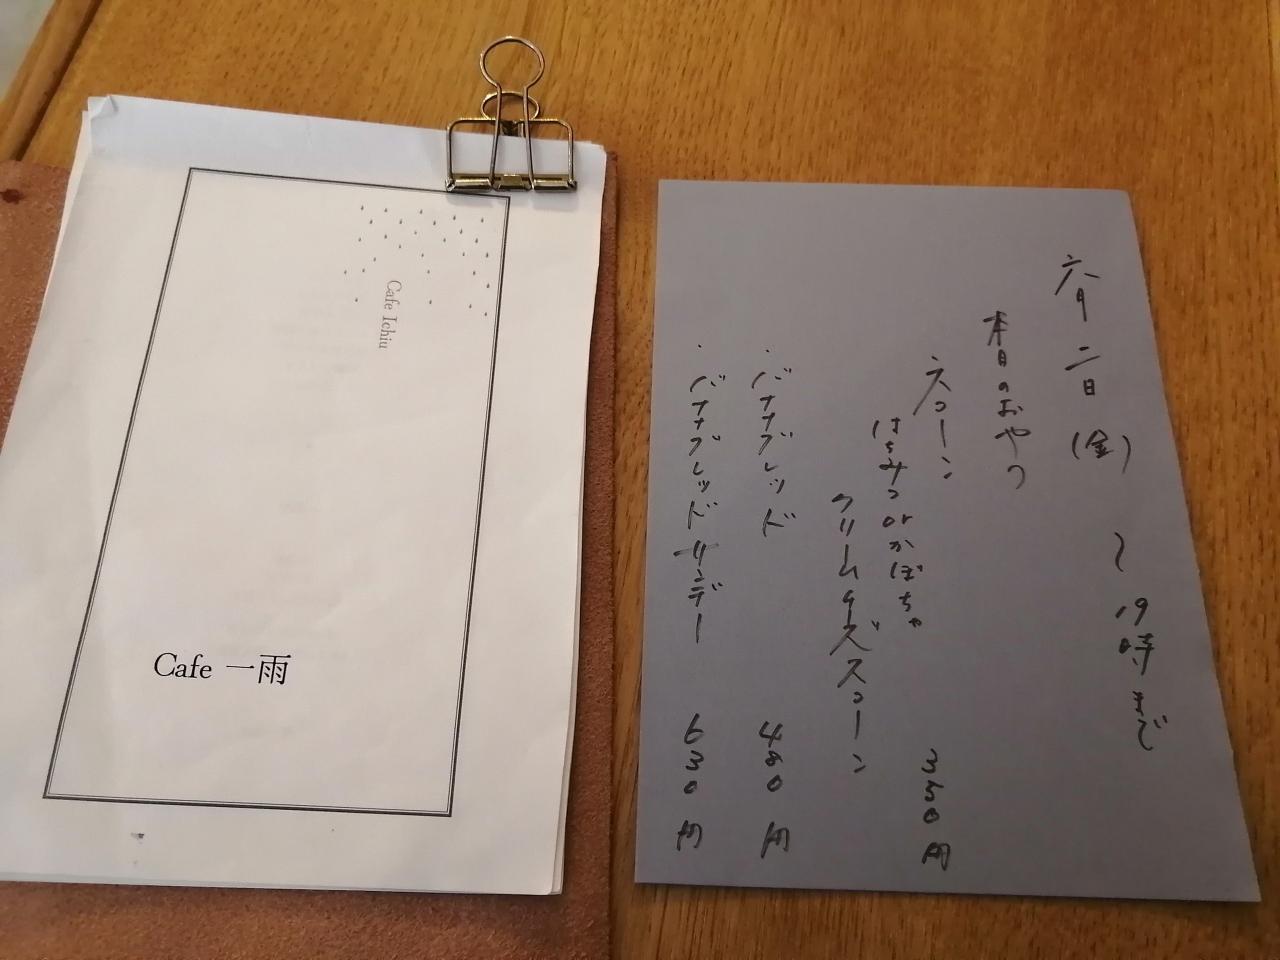 Cafe Ichiu
Cafe 一雨
六月二日(金) 〜19時まで
本日のおやつ
スコーン 350円
はちみつorかぼちゃ
クリームチーズスコーン
・バナナブレッド 480円
・バナナブレッドサンデー 630円